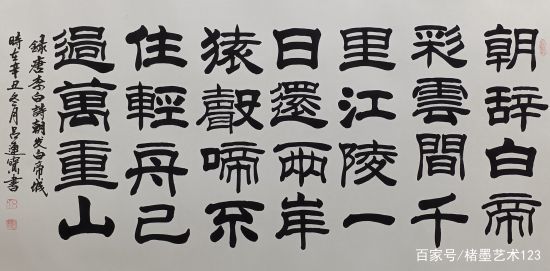 朝辞白帝
彩雲間千
里江陵一
日還兩岸
猿聲啼不
住輕舟已
過萬重山
錄唐李白詩朝发白帝城
時在辛丑冬月吕連書
百家号/楮墨艺术123